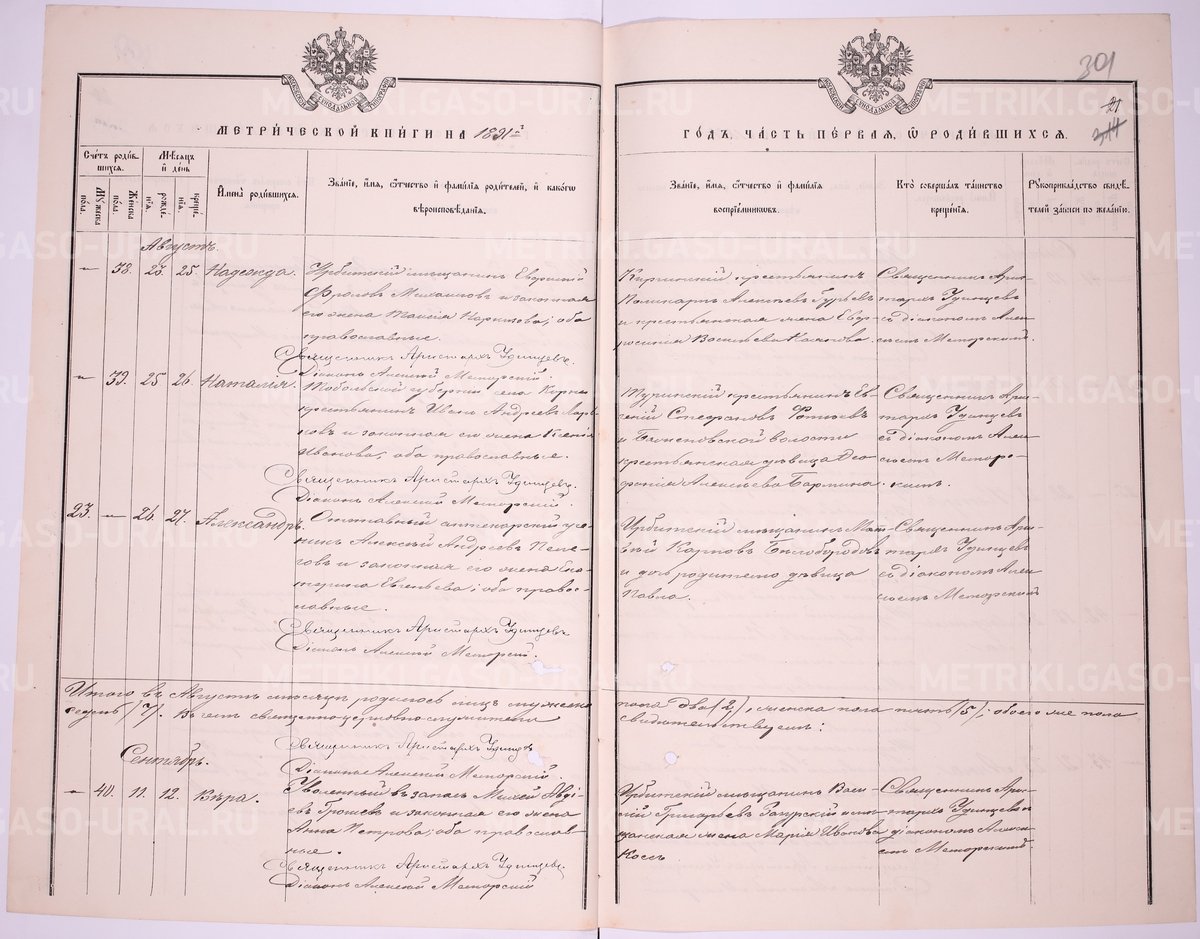 301
21
МЕТРИЧЕСКОЙ КНИГИ НА 1891 г.
ГОДЪ, ЧАСТЬ ПЕРВАЯ, Ѡ РОДИВШИХСЯ.
Счетъ родив-
шихся.
Мѣсяцъ
и день
Мужеска
пола.
Женска
пола.
рожде-
нія.
креще-
нія.
Имена родившихся.
Званіе, имя, отчество и фамилія родителей, и какогѡ
вѣроисповѣданія.
Званіе, имя, отчество и фамилія
воспріемниковъ.
Кто совершалъ таинство
крещенія.
Рукоприкладство свидѣ-
телей записи по желанію.
Августъ.
— 38. 23. 25. Надежда.
Ирбитскій мѣщанинъ
Фроловъ Михайловъ и законная
его жена Таисія Карпова; оба
православные.
Священникъ Аристархъ Удинцевъ.
Діаконъ Алексій Меморскій.
крестьянинъ
Поликарпъ Алексѣевъ Гурьевъ
и крестьянская жена Евфр-
осинія Васильева
Священникъ Арис-
тархъ Удинцевъ
съ діакономъ Алек-
сѣемъ Меморскимъ.
— 39. 25. 26. Наталія.
Тобольской губерніи села
крестьянинъ Иванъ Андреевъ
и законная его жена Ксенія
Иванова, оба православные.
Священникъ Аристархъ Удинцевъ.
Діаконъ Алексій Меморскій.
Туринскій крестьянинъ Ев-
геній Стефановъ
и волости
крестьянская дѣвица Ѳео-
Алексѣева
Священникъ Арис-
тархъ Удинцевъ
съ діакономъ Алек-
сѣемъ Меморс-
кимъ.
23. — 26. 27. Александръ.
Отставный аптекарскій уче-
никъ Алексѣй Андреевъ Пене-
говъ и законная его жена Ека-
терина Евгеньева; оба правос-
лавные.
Священникъ Аристархъ Удинцевъ
Діаконъ Алексій Меморскій.
Ирбитскій мѣщанинъ Мат-
вѣй Карповъ Бѣлобородовъ
и дочь дѣвица
Павла.
Священникъ Арис-
тархъ Удинцевъ
съ діакономъ Алек-
сѣемъ Меморскимъ
Итого въ Августѣ мѣсяцѣ родилось лицъ мужеска пола два /2/, женска пола пять /5/; обоего же пола
седмь /7/. Въ чемъ священно-церковно-служители свидѣтельствуемъ:
Священникъ Аристархъ Удинцевъ
Діаконъ Алексій Меморскій.
Сентябрь.
— 40. 11. 12. Вѣра.
Уволенный въ запасъ Михей Авді-
евъ Грошевъ и законная его жена
Анна Петрова; оба православ-
ные.
Священникъ Аристархъ Удинцевъ.
Діаконъ Алексій Меморскій
Ирбитскій мѣщанинъ Васи-
лій Григорьевъ и мѣ-
щанская жена Марія Иванова
Коссъ
Священникъ Арис-
тархъ Удинцевъ съ
діакономъ Алексѣ-
емъ Меморскимъ.
METRIKI.GASO-URAL.RU